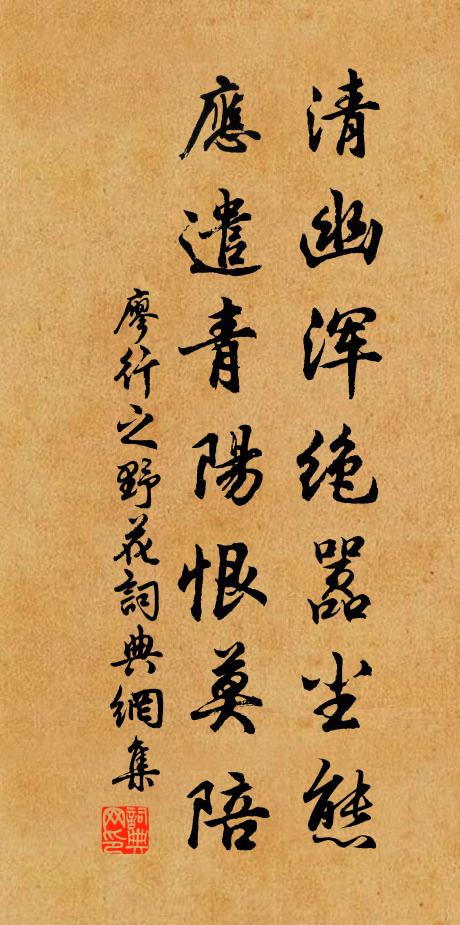 清幽浑绝嚣尘態
應遣青陽恨莫陪
廖行之野花詞典網集
詞典网印